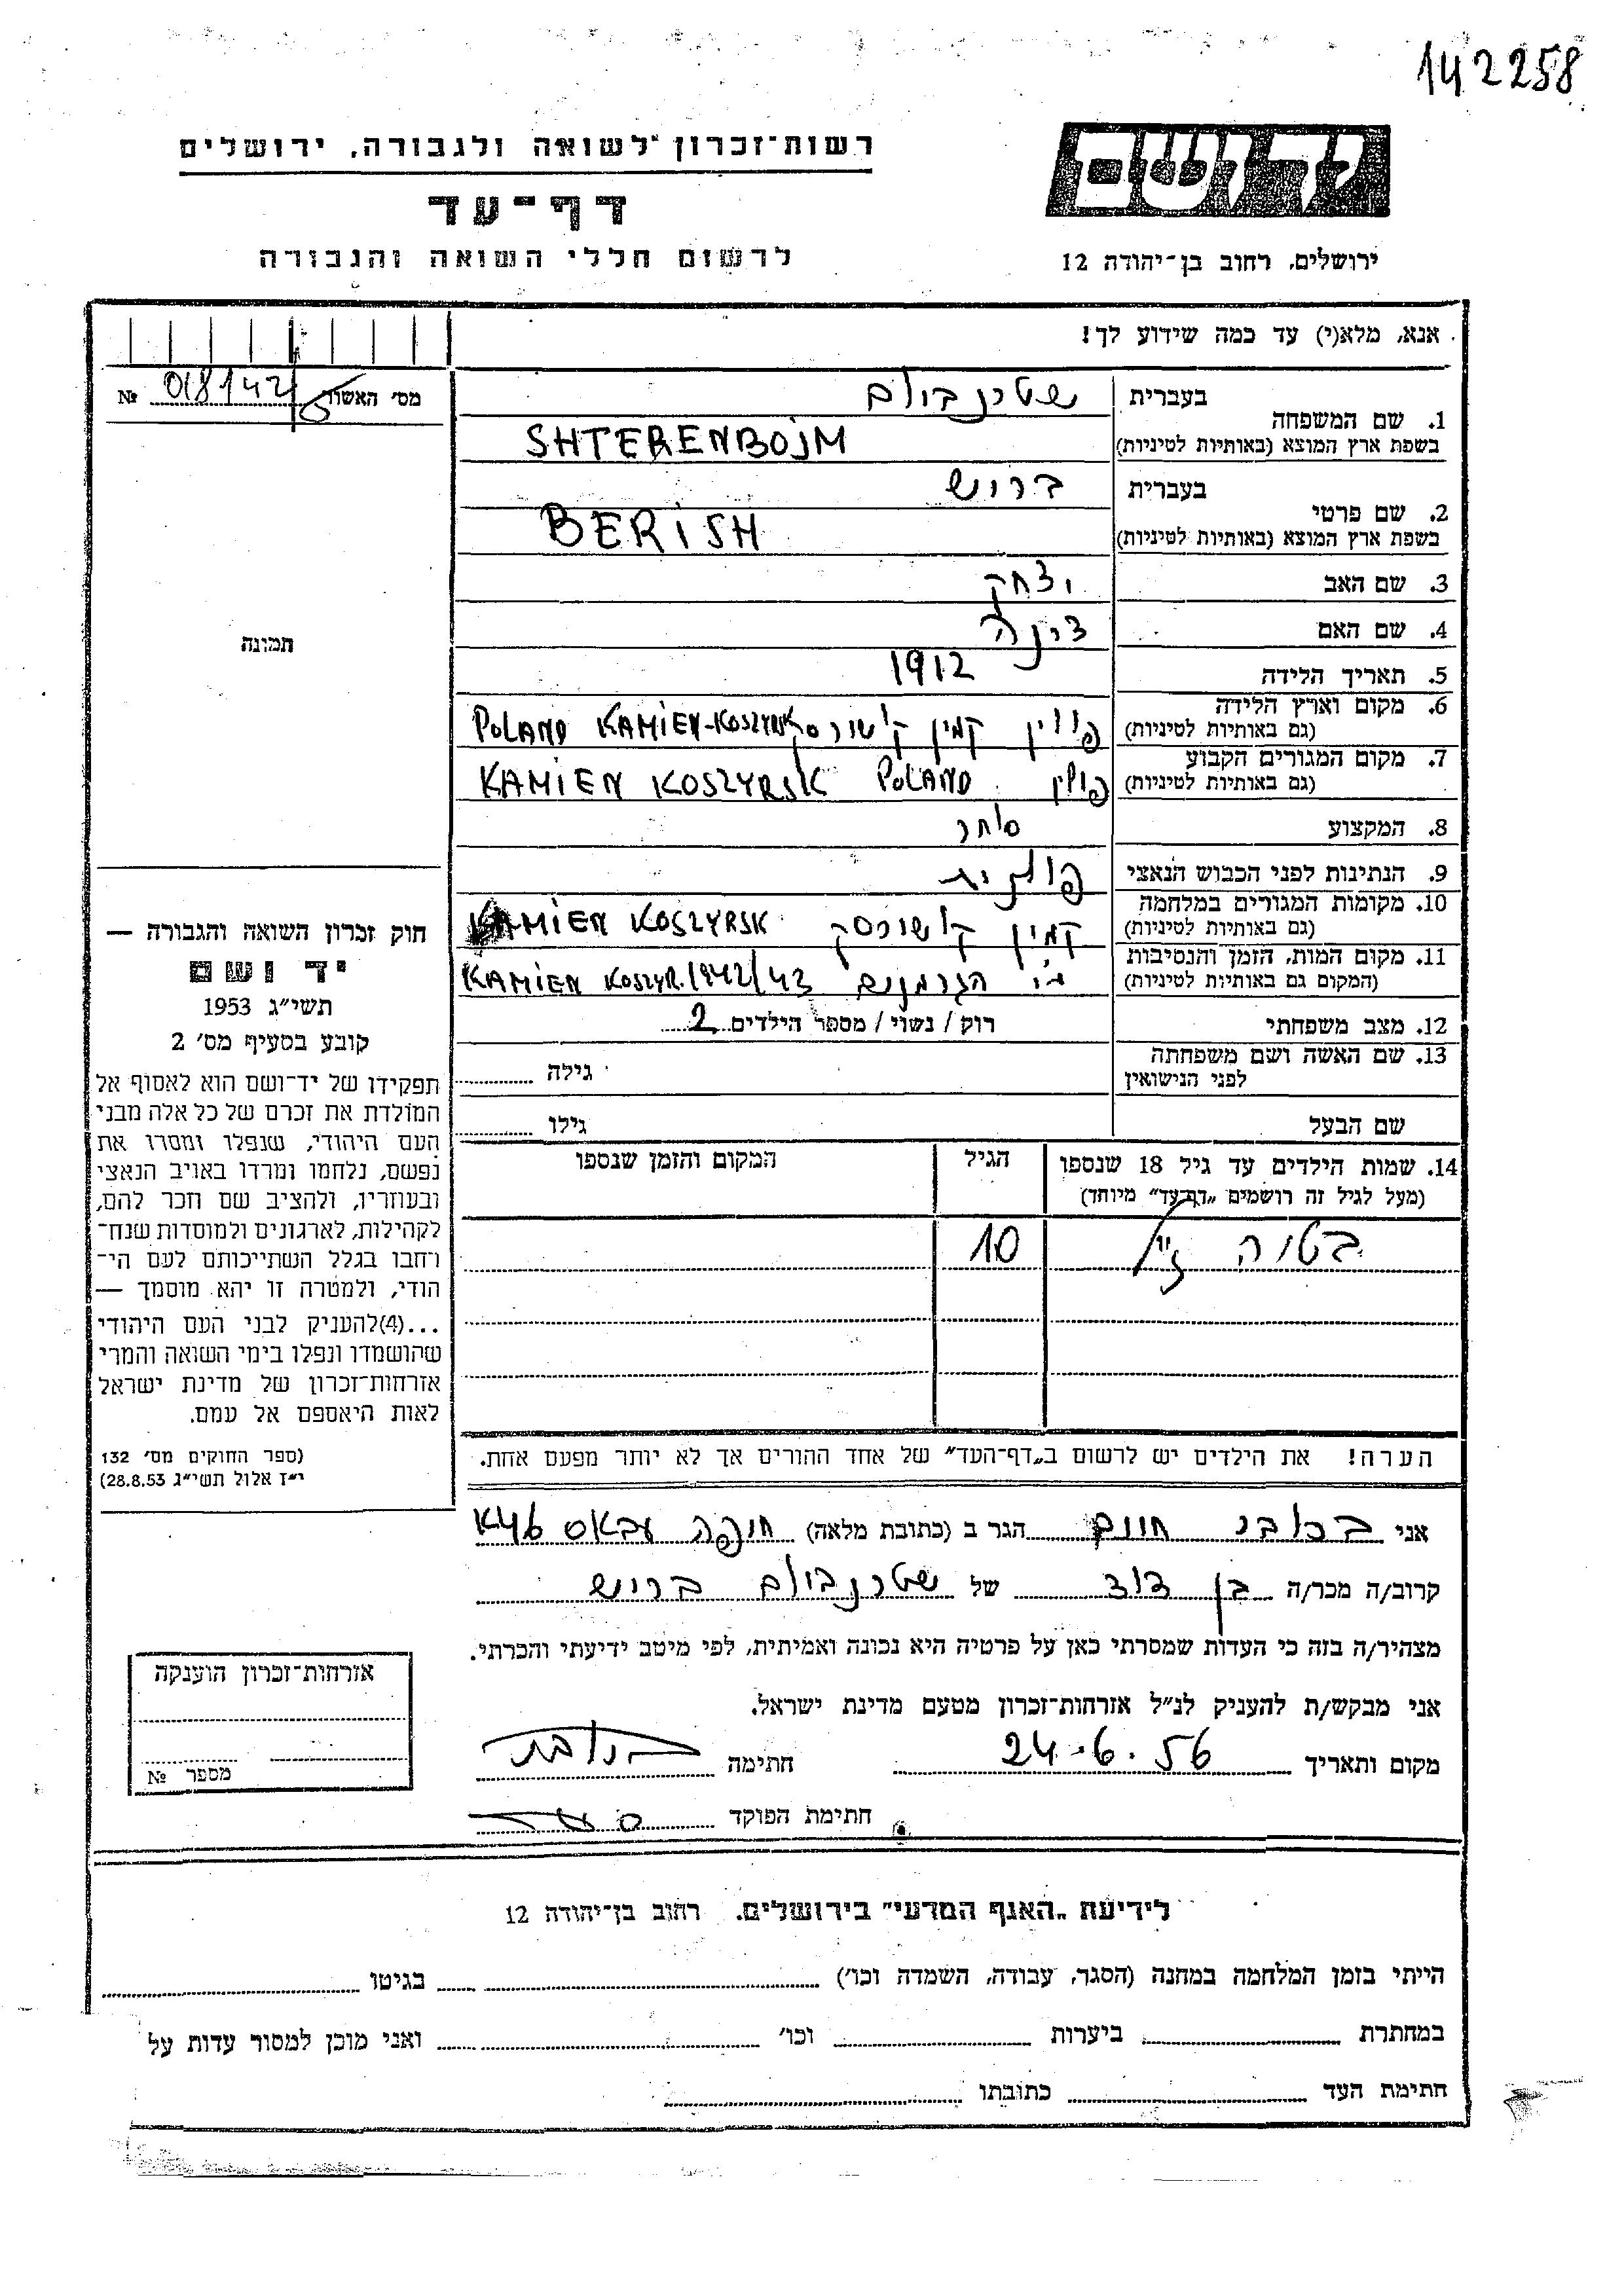 142258
רשות־זכרון לשואה ולגבורה, ירושלים
דף־עד
לרשום חללי השואה והגבורה
יד ושם
ירושלים, רחוב בן־יהודה 12
אנא, מלא(י) עד כמה שידוע לך!
מס' האשה № 018142
1. שם המשפחה בעברית שטרנבוים
בשפת ארץ המוצא (באותיות לטיניות) SHTERENBOJM
2. שם פרטי בעברית בריש
בשפת ארץ המוצא (באותיות לטיניות) BERISH
3. שם האב יצחק
4. שם האם דינה
5. תאריך הלידה 1912
6. מקום וארץ הלידה (גם באותיות לטיניות) פולין קמין קושורסק POLAND KAMIEN-KOSZYRSK
7. מקום המגורים הקבוע (גם באותיות לטיניות) פולין KAMIEN KOSZYRSK POLAND
8. המקצוע סוחר
9. הנתינות לפני הכבוש הנאצי פולנית
10. מקומות המגורים במלחמה (גם באותיות לטיניות) קמין קושורסק KAMIEN KOSZYRSK
11. מקום המות, הזמן והנסיבות (המקום גם באותיות לטיניות) ע"י הגרמנים KAMIEN KOSZYR. 1942/43
12. מצב משפחתי רוק / נשוי / מספר הילדים 2
13. שם האשה ושם משפחתה לפני הנישואין גילה
שם הבעל גילו
14. שמות הילדים עד גיל 18 שנספו (מעל לגיל זה רושמים „דף־עד" מיוחד) הגיל המקום והזמן שנספו
בטוה ז"ל 10
הערה! את הילדים יש לרשום ב„דף־העד" של אחד ההורים אך לא יותר מפעם אחת.
תמונה
חוק זכרון השואה והגבורה —
יד ושם
תשי"ג 1953
קובע בסעיף מס' 2
תפקידו של יד־ושם הוא לאסוף אל
המולדת את זכרם של כל אלה מבני
העם היהודי, שנפלו ומסרו את
נפשם, נלחמו ומרדו באויב הנאצי
ובעוזריו, ולהציב שם וזכר להם,
לקהילות, לארגונים ולמוסדות שנח־
רחבו בגלל השתייכותם לעם הי־
הודי, ולמטרה זו יהא מוסמך —
...(4)להעניק לבני העם היהודי
שהושמדו ונפלו בימי השואה והמרי
אזרחות־זכרון של מדינת ישראל
לאות היאספם אל עמם.
(ספר החוקים מס' 132
י"ז אלול תשי"ג 28.8.53)
אני חיים הגר ב (כתובת מלאה) חיפה עבאס 46א
קרוב/ה מכר/ה בן דוד של שטרנבוים בריש
מצהיר/ה בזה כי העדות שמסרתי כאן על פרטיה היא נכונה ואמיתית, לפי מיטב ידיעתי והכרתי.
אני מבקש/ת להעניק לנ"ל אזרחות־זכרון מטעם מדינת ישראל.
מקום ותאריך 24.6.56 חתימה
חתימת הפוקד
אזרחות־זכרון הוענקה
מספר №
לידיעת „האגף המדעי" בירושלים. רחוב בן־יהודה 12
הייתי בזמן המלחמה במחנה (הסגר, עבודה, השמדה וכו') בגיטו
במחתרת ביערות וכו' ואני מוכן למסור עדות על
חתימת העד כתובתו